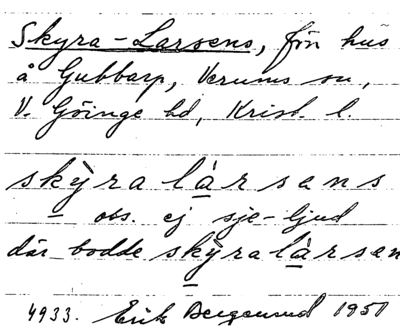 Skyra-Larsens, fön hus
å Gubbarp, Verums sn,
V. Göinge hd, Krist. l.
skỳra làrsens
obs. ej sje-ljud
där bodde skỳralàrsen
4933. Erik 1951